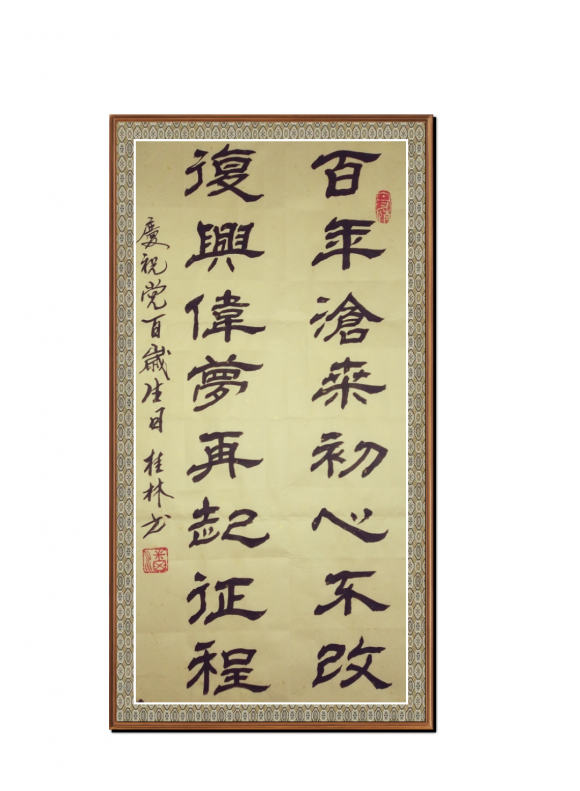 百年滄桒初心不改
復興偉夢再起征程
慶祝党百歲生日 桂林书